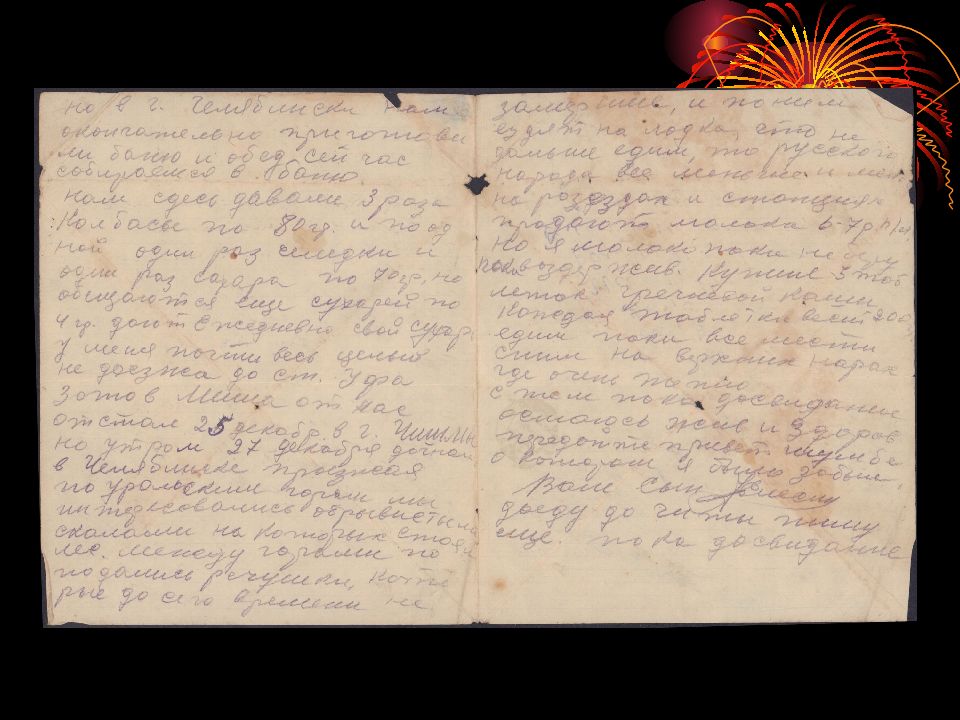 но в г. Челябински нам
окончательно приготови
ли баню и обед сей час
собираемся в баню
нам сдесь давали 3 раза
Колбасы по 80 гр. и по од
ной один раз селедки и
один раз сахара по 70 гр, но
обещаются еще сухарей по
4 гр. дают Ежедневно свой сухар.
У меня почти весь целый
не доезжа до ст. Уфа
Зотов Миша от нас
отстал 25 декабр. в г.
но утром 27 декабря догнал
в Челябинске проезжая
по уральским горам мы
интересовались обрывистыми
скалами на которых стоял
лес. между горами по
подались речушки, кото
рые до сего времени не
замерзшие, и по ним
ездят на лодка, сто не
дальше едим, то русского
народа все меньше и мен
на розездах и станциях
продают молоко 6-7 р. п/л,
но я молоко пока не беру
пока воздержив. Купил 3 таб
леток гречневой каши
Каждая таблетка весит 200 г
едим пока все вместе
спим на верхних нарах
где очень тепло
с тем пока досвидание
остаюсь жив и здоров
передайте привет
о котором я было забыл,
Ваш сын
доеду до читы пишу
еще. пока досвидание